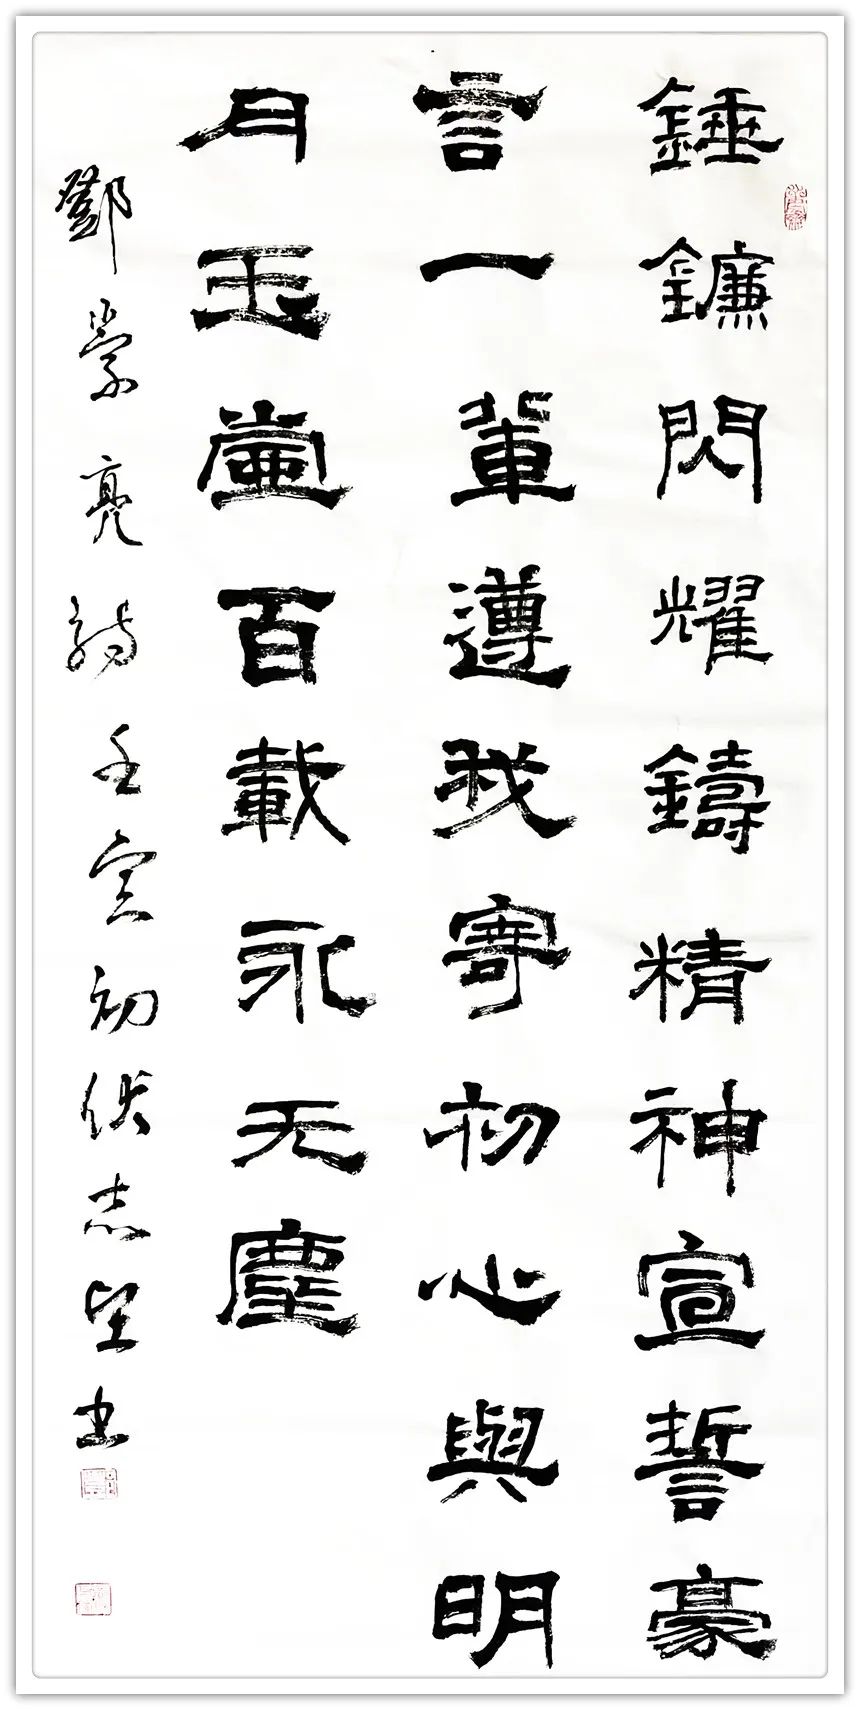 錘鐮閃耀鑄精神宣誓豪
言一輩遵我寄初心與明
月玉壺百載永无塵
鄧崇亮詩壬寅初伏志書